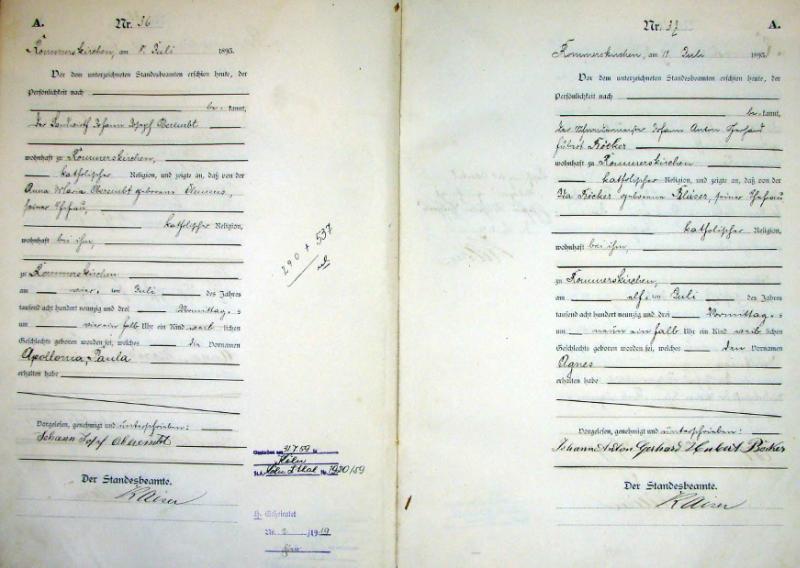 A.
Nr. 36
Rommerskirchen, am 5. Juli 1893.
Vor dem unterzeichneten Standesbeamten erschien heute, der
Persönlichkeit nach
be kannt,
der Landwirth Johann Josef Oberembt
wohnhaft zu Rommerskirchen,
katholischer Religion, und zeigte an, daß von der
Anna Maria Oberembt geborene
seiner Ehefrau,
katholischer Religion,
wohnhaft bei ihm,
zu Rommerskirchen
am vier ten Juli des Jahres
tausend acht hundert neunzig und drei Vormittags
um vier ein halb Uhr ein Kind weib lichen
Geschlechts geboren worden sei, welches die Vornamen
Apollonia, Paula
erhalten habe
Vorgelesen, genehmigt und unterschrieben:
Johann Josef Oberembt
Der Standesbeamte.
Kaiser
290 + 537
Gestorben am 31.7.59 in
Köln
St.A. Köln I Nr. 1920/59
Geheiratet
Nr. 2 /1919
Nr. 37
A.
Rommerskirchen, am 11 Juli 1893
Vor dem unterzeichneten Standesbeamten erschien heute, der
Persönlichkeit nach
be kannt,
der Schreinermeister Johann Anton Gerhard
Hubert Böcker
wohnhaft zu Rommerskirchen
katholischer Religion, und zeigte an, daß von der
Ida Böcker geborenen Kläser, seiner Ehefrau
katholischer Religion,
wohnhaft bei ihm,
zu Rommerskirchen,
am elf ten Juli des Jahres
tausend acht hundert neunzig und drei Vormittags
um neun ein halb Uhr ein Kind weib lichen
Geschlechts geboren worden sei, welches den Vornamen
Agnes
erhalten habe
Vorgelesen, genehmigt und unterschrieben:
Johann Anton Gerhard Hubert Böcker
Der Standesbeamte.
Kaiser